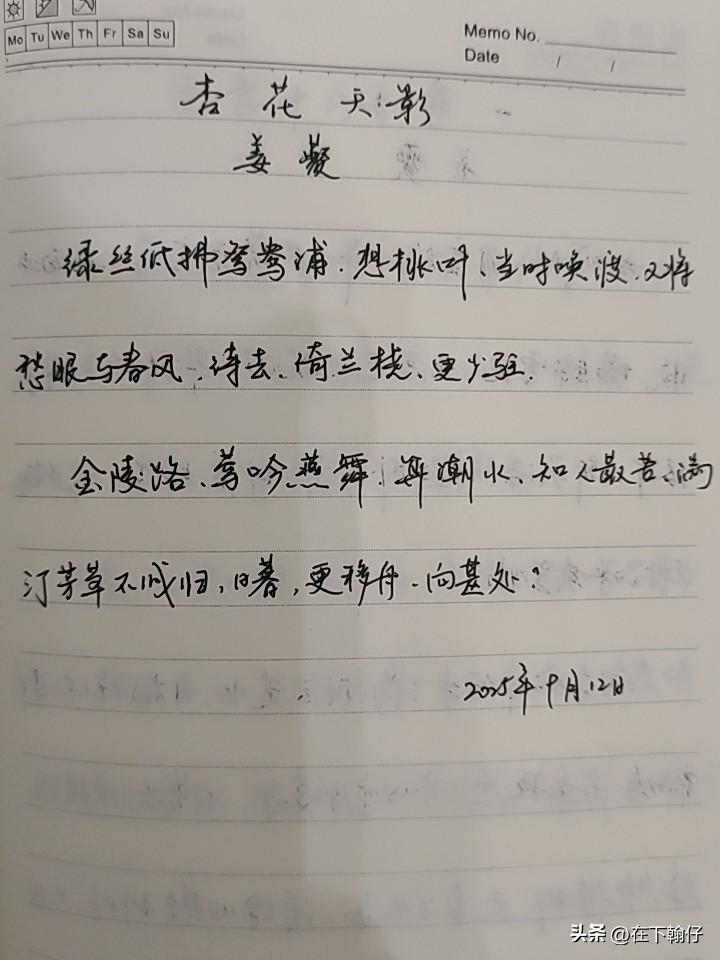 Mo Tu We Th Fr Sa Su
Memo No.
Date / /
杏花天影
姜夔
绿丝低拂鸳鸯浦.想桃叶、当时唤渡.又将
愁眼与春风.待去、倚兰桡、更少驻.
金陵路、莺吟燕舞.算潮水、知人最苦.满
汀芳草不成归,日暮,更移舟.向甚处?
2025年9月12日
头条 @在下翰仔